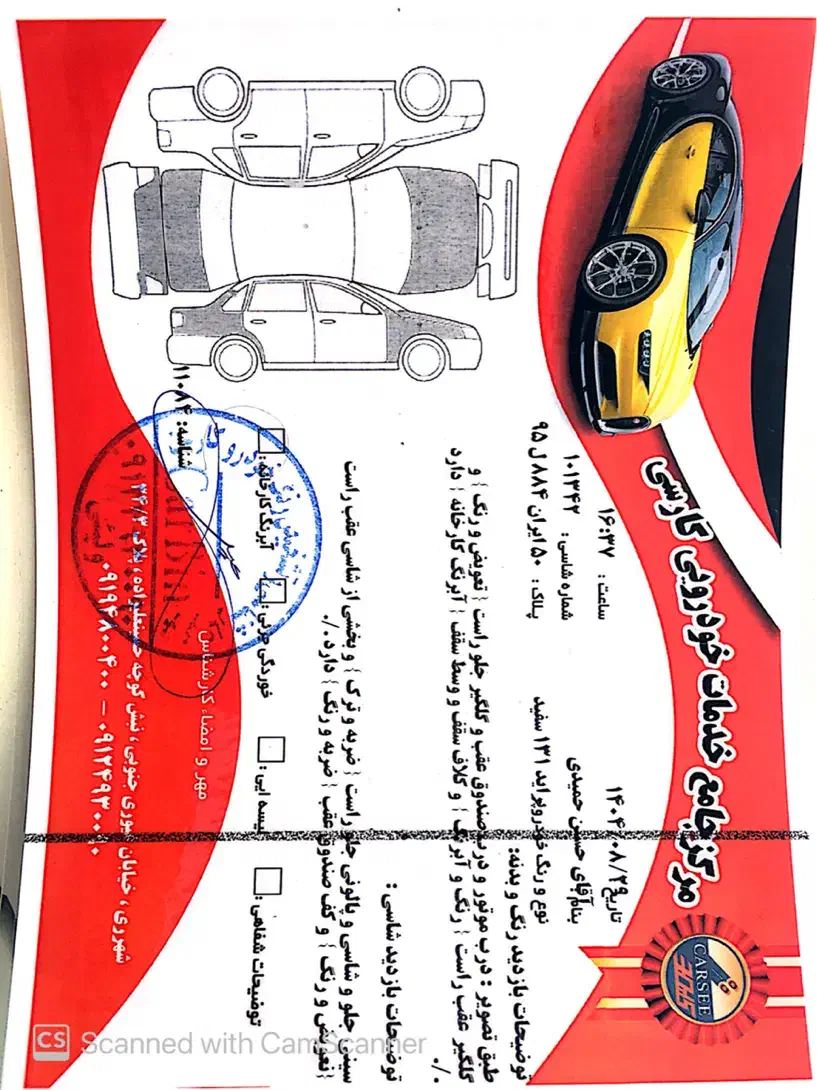 مرکز جامع خدمات خودرویی کارسی
CARSEE
کارسی
تاریخ: ۱۴۰۴/۰۸/۲۹
ساعت: ۱۶:۳۷
بنام آقای حسین حمیدی
شماره شاسی: ۱۰۱۳۴۲
نوع و رنگ خودرو پراید ۱۳۱ سفید
پلاک: ۵۰ ایران ۸۸۴ ل ۹۵
توضیحات بازدید رنگ و بدنه:
طبق تصویر: درب موتور و درب صندوق عقب و گلگیر جلو راست { تعویض و رنگ } و
گلگیر عقب راست { رنگ و آبرنگ } و کلاف سقف و وسط سقف { آبرنگ کارخانه } دارد
./.
توضیحات بازدید شاسی:
سینی جلو و شاسی و پالونی جلو راست { ضربه و ترک } و بخشی از شاسی عقب راست
{تعویض و رنگ } و کف صندوق عقب { ضربه و رنگ } دارد./.
توضیحات شفاهی: لیسه ایی: خوردگی جزئی: آبرنگ کارخانه:
مهر و امضاء کارشناس
شناسه: ۱۱۰۸۴
شهرری، خیابان جنوبی، نبش کوچه پلاک ۳۴/۲
Scanned with CamScanner
CS